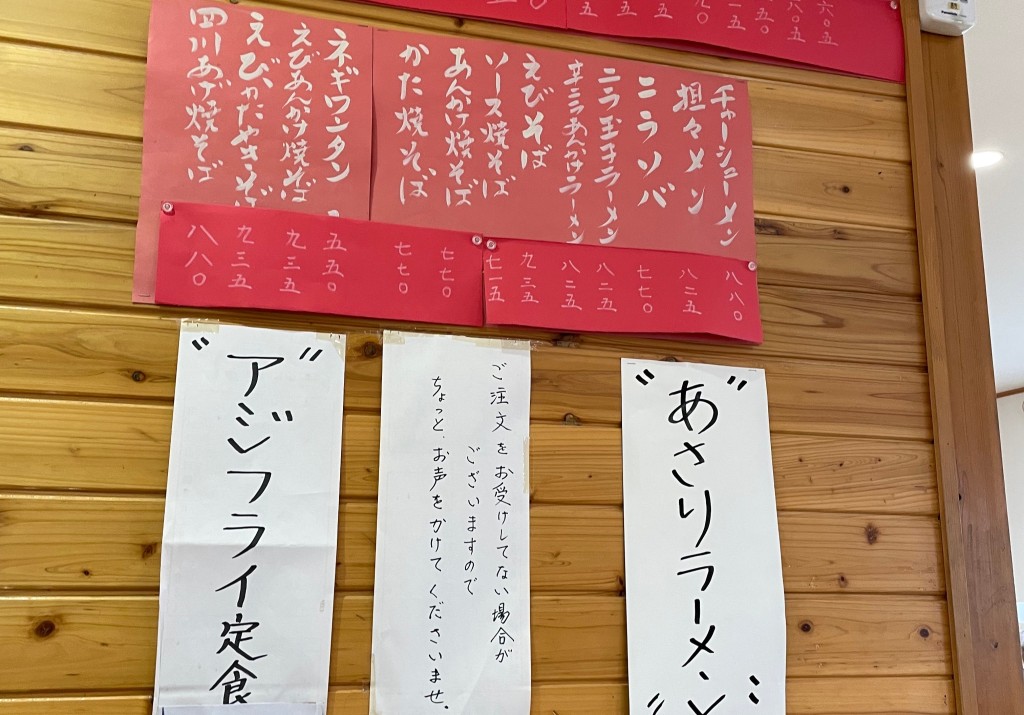 チャーシューメン
担々メン
ニラソバ
ニラ玉子ラーメン
辛ニラあんかけラーメン
えびそば
ソース焼そば
あんかけ焼そば
かた焼そば
ネギワンタン
えびあんかけ焼そば
えびかたやきそば
四川あげ焼そば
八八〇
八二五
七七〇
八二五
八二五
九三五
七一五
七七〇
七七〇
五五〇
九三五
九三五
八八〇
"あ"さりラーメン
ご注文をお受けしてない場合が
ございますので
ちょっと、お声をかけてくださいませ。
"ア"ジフライ定食